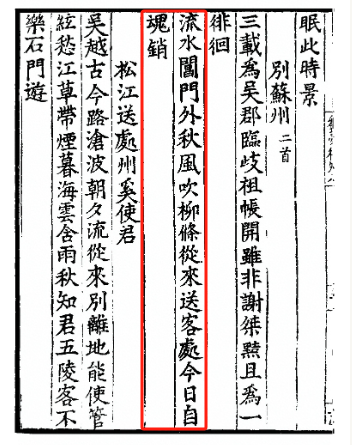 眠此時景
別蘇州二首
三載爲吳郡臨歧祖帳開雖非謝桀黠且爲一
徘徊
流水閶門外秋風吹柳條從來送客處今日自
魂銷
松江送處州奚使君
吳越古今路滄波朝夕流從來別離地能使管
絃愁江草帶煙暮海雲含雨秋知君五陵客不
樂石門遊